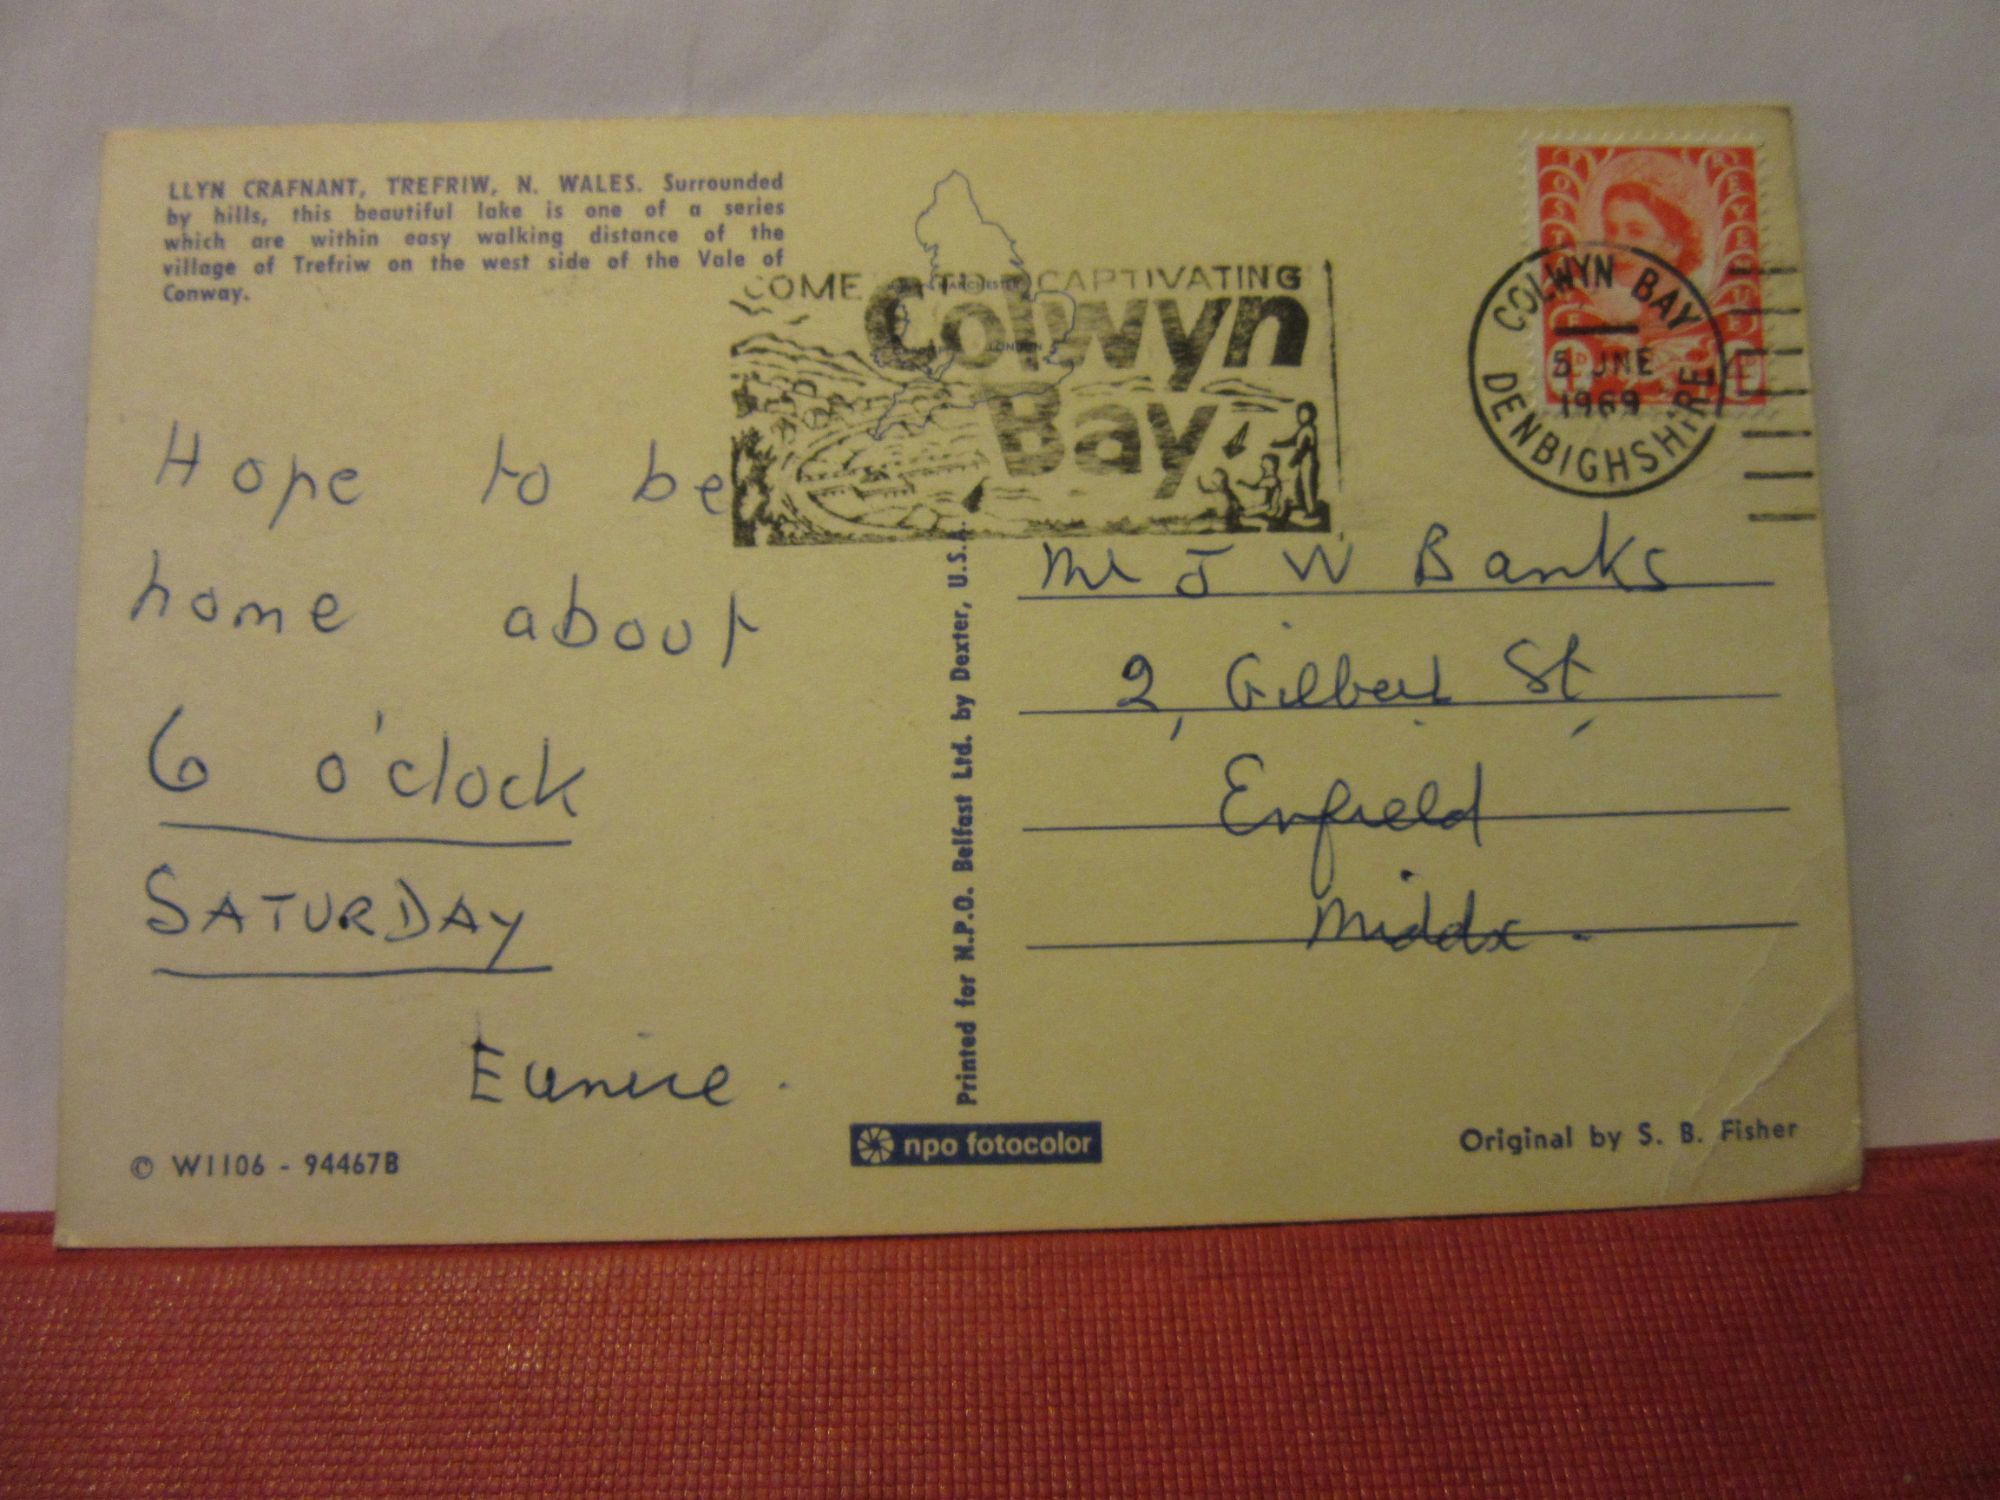 LLYN CRAFNANT, TREFRIW, N. WALES. Surrounded
by hills, this beautiful lake is one of a series
which are within easy walking distance of the
village of Trefriw on the west side of the Vale of
Conway.
COME TO CAPTIVATING
Colwyn
Bay
MANCHESTER
LONDON
POSTAGE REVENUE
COLWYN BAY
5 JNE
1969
DENBIGHSHIRE
Hope to be
home about
6 o'clock
SATURDAY
Eunice.
Printed for N.P.O. Belfast Ltd. by Dexter, U.S.A.
Mr J W Banks
2, Gilbert St,
Enfield
Middx.
© W1106 - 94467B
npo fotocolor
Original by S. B. Fisher